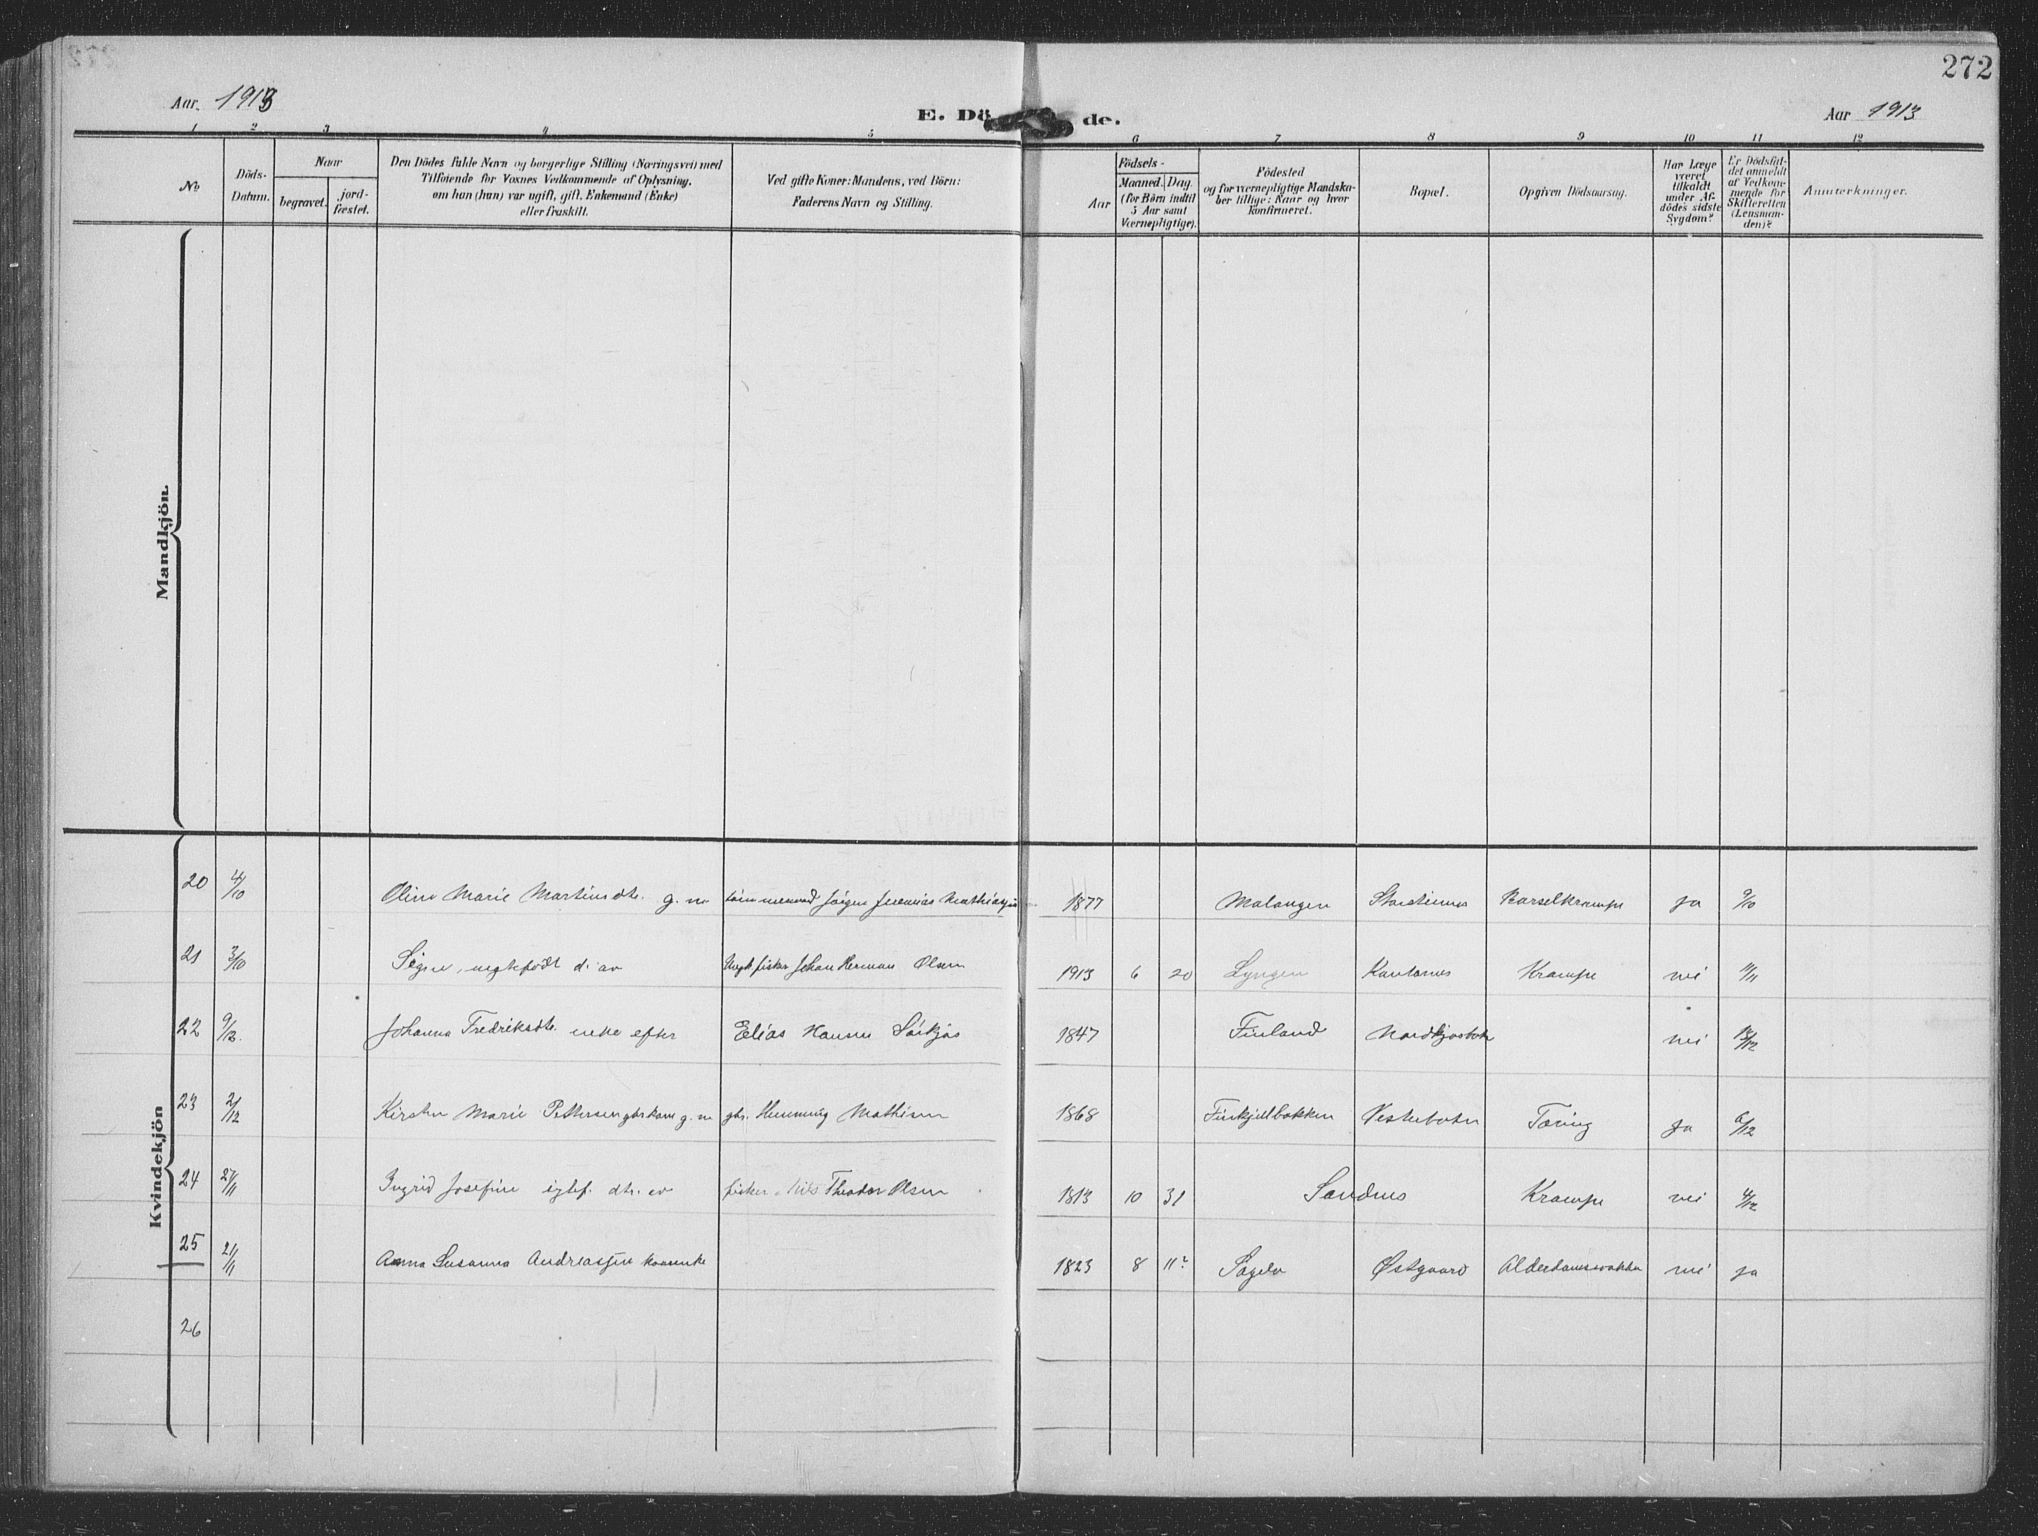 272
Aar. 1913
E. Dö de.
Aar 1913
1 2 3 4 5 6 7 8 9 10 11 12
No
Döds-
Datum.
Naar
begravet.
jord-
fæstet.
Den Dödes fulde Navn og borgerlige Stilling (Næringsvei) med
Tilföiende for Voxnes Vedkommende af Oplysning,
om han (hun) var ugift, gift, Enkemand (Enke)
eller fraskilt.
Ved gifte Koner: Mandens, ved Börn:
Faderens Navn og Stilling.
Födsels-
Aar
Maaned. Dag.
(for Börn indtil
5 Aar samt
Værnepligtige).
Födested
og for værnepligtige Mandska-
ber tillige: Naar og hvor
konfirmeret.
Bopæl.
Opgiven Dödsaarsag.
Har Læge
været
tilkaldt
under Af-
dödes sidste
Sygdom?
Er Dödsfal-
det anmeldt
af Vedkom-
mende for
Skifteretten
(Lensman-
den)?
Anmærkninger.
Mandkjön.
Kvindekjön
20 4/10 Oline Marie Martinsdtr. g. m. Jørgen Jeremias Mathiasen 1877 Malangen Storsteinnes Barselkrampe ja 9/10
21 3/10 Signe, uegtefødt d. av Ungk. fisker Johan Herman Olsen 1913 6 20 Lyngen Kantornes Krampe nei 11/11
22 9/12. Johanna Fredriksdtr. enke efter Elias Hansen Sørkjos 1847 Finland Nordkjosbotn nei 18/12
23 2/12 Kirsten Marie Pettersen gbrkone g. m. gbr. Hemming Mathisen 1868 Finkjellbakken Vesterbotn Tæring ja 6/12
24 27/11 Ingrid Josefine egtef. dtr. av fisker Nils Theodor Olsen 1813 10 31 Sandnes Krampe nei 4/12
25 21/11 Anna Susanna Andreassen kaarenke 1823 8 11? Sagelv Østgaard Alderdomssvakhet nei ja
26